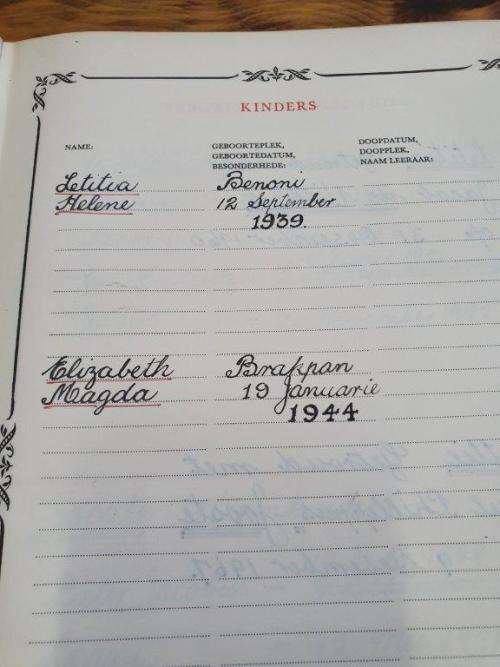 KINDERS
NAME:
GEBOORTEPLEK,
GEBOORTEDATUM,
BESONDERHEDE:
DOOPDATUM,
DOOPPLEK,
NAAM LEERAAR:
Letitia Benoni
Helene 12 September
1939.
Elizabeth Brakpan
Magda 19 Januarie
1944